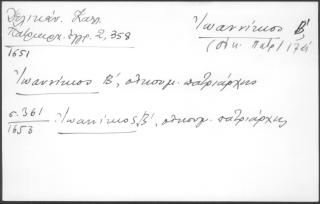 Δελικάν. Καλ.
Πατριαρχ. ἔγγρ. 2, 358
Ἰωαννίκιος Β΄
(οἰκ. Πατρ)
1651
Ἰωαννίκιος Β΄, οἰκουμ. πατριάρχης
σ. 361
1653
Ἰωαννίκιος Β΄, οἰκουμ. πατριάρχης